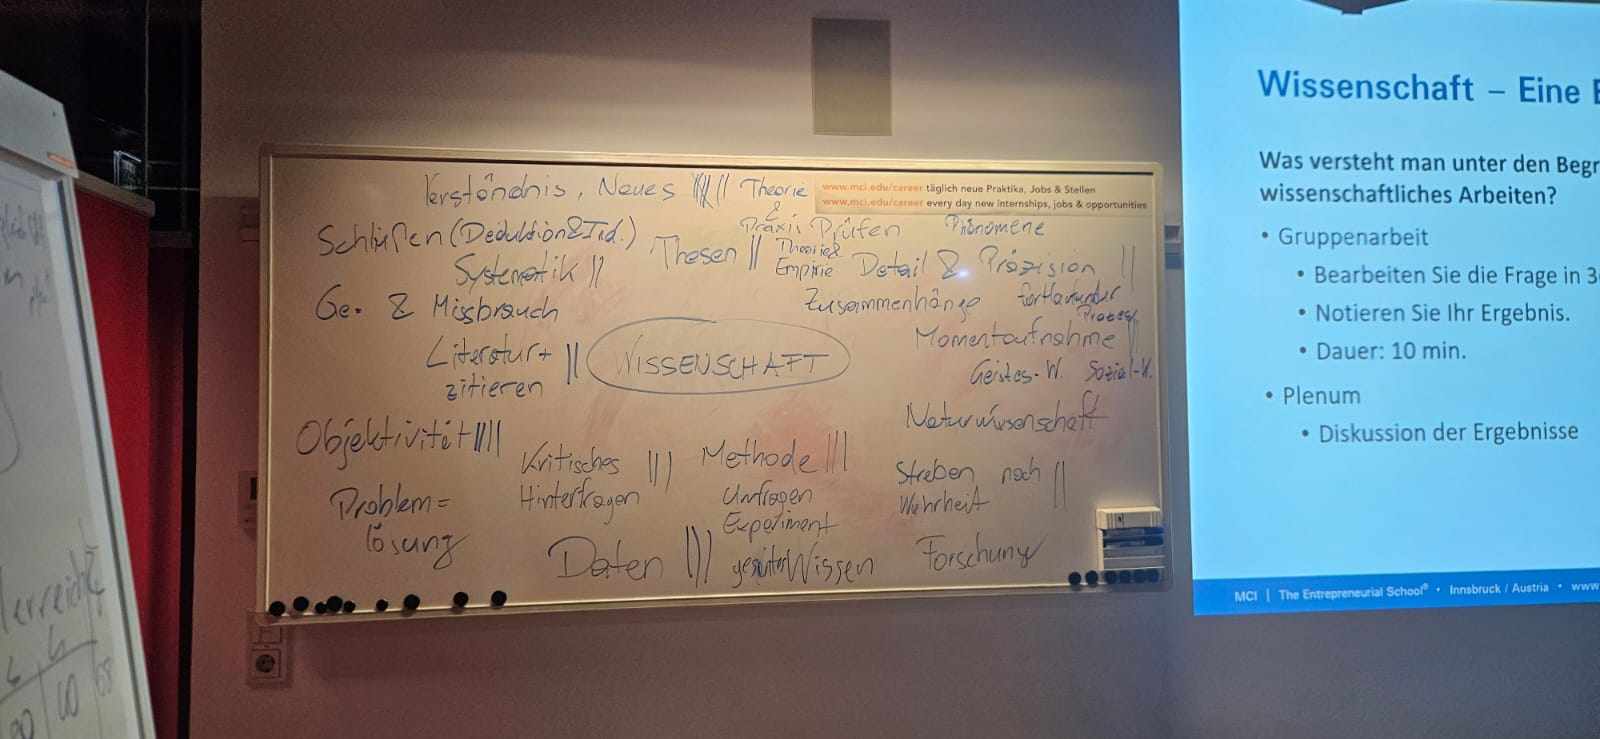 Verständnis, Neues
Theorie
&
Praxis
www.mci.edu/career täglich neue Praktika, Jobs & Stellen
www.mci.edu/career every day new internships, jobs & opportunities
Schließen (Deduktion & Ind.)
Thesen ||
Prüfen
Phänomene
Systematik ||
Theorie &
Empirie
Detail & Präzision ||
Ge- & Missbrauch
Zusammenhänge
fortlaufender
Prozess
Literatur +
zitieren ||
WISSENSCHAFT
Momentaufnahme
Geistes-W. Sozial-W.
Naturwissenschaft
Objektivität ||||
Kritisches
Hinterfragen |||
Methode |||
Umfragen
Experiment
Streben nach
Wahrheit ||
Problem=
lösung
Daten
Wissen
Forschung
Wissenschaft – Eine
Was versteht man unter den
wissenschaftliches Arbeiten?
• Gruppenarbeit
• Bearbeiten Sie die Frage in
• Notieren Sie Ihr Ergebnis.
• Dauer: 10 min.
• Plenum
• Diskussion der Ergebnisse
MCI | The Entrepreneurial School® • Innsbruck / Austria • www